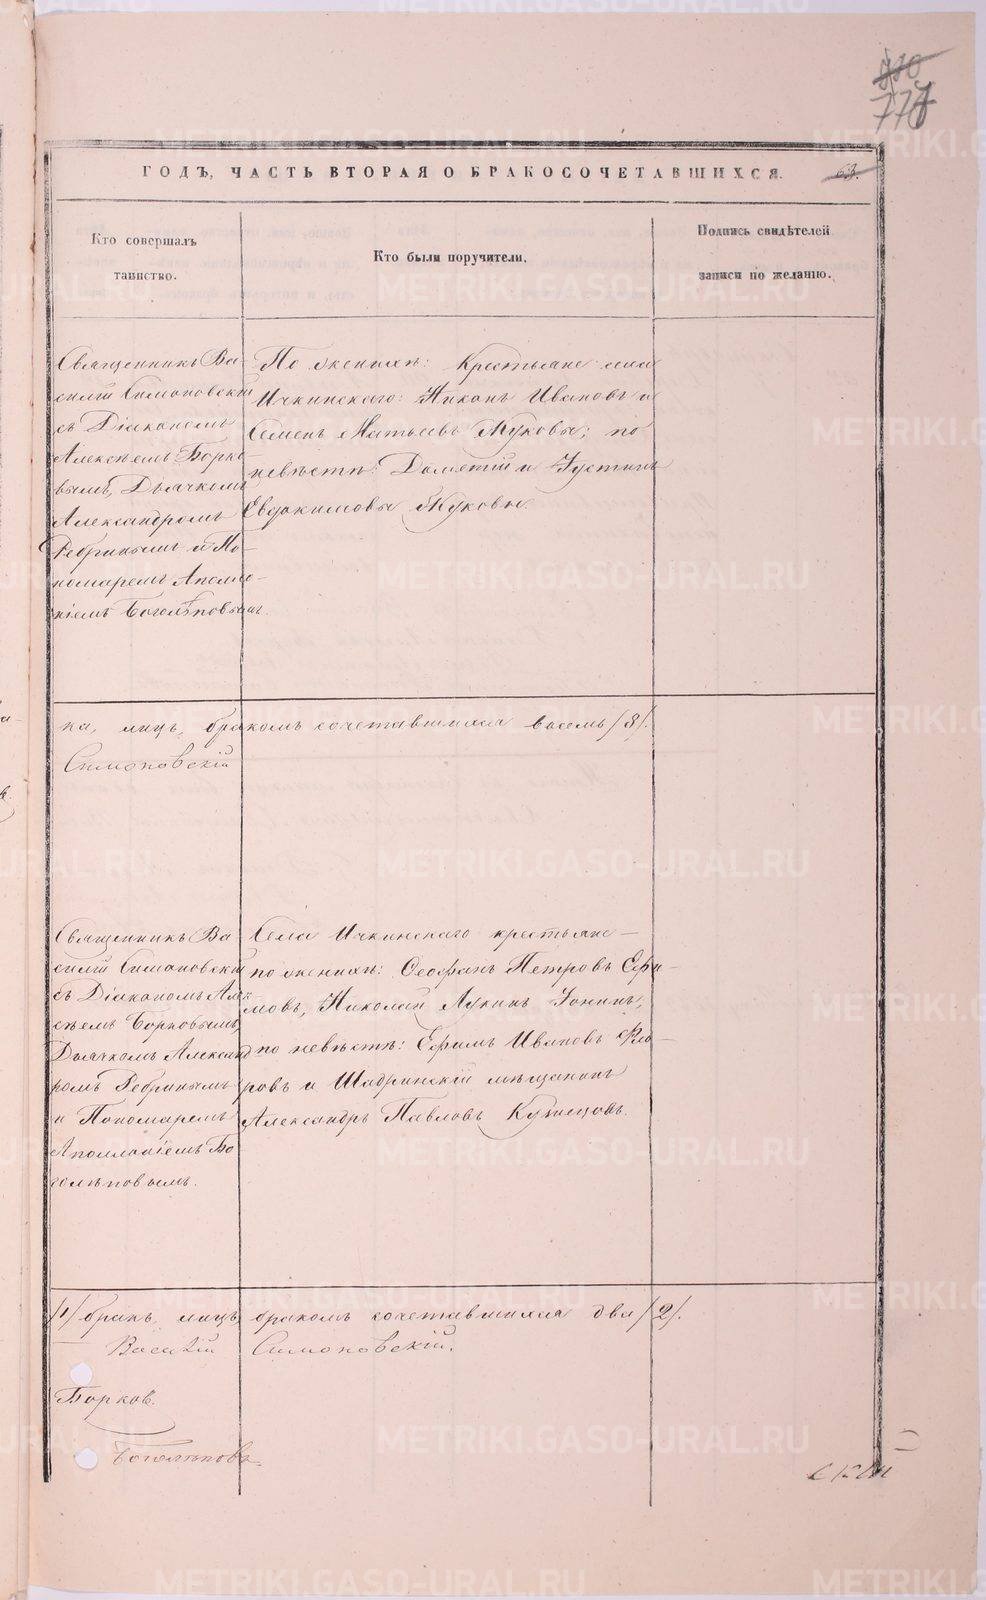 776
ГОДЪ, ЧАСТЬ ВТОРАЯ О БРАКОСОЧЕТАВШИХСЯ.
63.
Кто совершалъ
таинство.
Кто были поручители.
Подпись свидѣтелей
записи по желанію.
Священникъ Ва-
силій Симановскій
съ Діакономъ
Алексѣемъ Борко-
вымъ, Дьячкомъ
Александромъ
Ребринымъ и По-
номаремъ Аполло-
ніемъ Боголѣповымъ.
По женихѣ: Крестьяне села
Ичкинскаго: Никонъ Ивановъ и
Семенъ Матвѣевъ Жуковы; по
невѣстѣ: Дометій и Іустинъ
Евдокимовы Жуковы.
ка, лицъ, бракомъ сочетавшихся восемь /8/.
Симановскій
Священникъ Ва-
силій Симановскій
съ Діакономъ Алек-
сѣемъ Борковымъ,
Дьячкомъ Александ-
ромъ Ребринымъ
и Пономаремъ
Аполлоніемъ Бо-
голѣповымъ.
Села Ичкинскаго крестьяне –
по женихѣ: Ѳеофанъ Петровъ Ефи-
мовъ, Николай Лукинъ Іонинъ;
по невѣстѣ: Ефимъ Ивановъ Фло-
ровъ и Шадринскій мѣщанинъ
Александръ Павловъ Кузнецовъ.
/1/ бракъ, лицъ, бракомъ сочетавшихся два /2/.
Василій Симановскій.
Борковъ.
Боголѣповъ.
METRIKI.GASO-URAL.RU